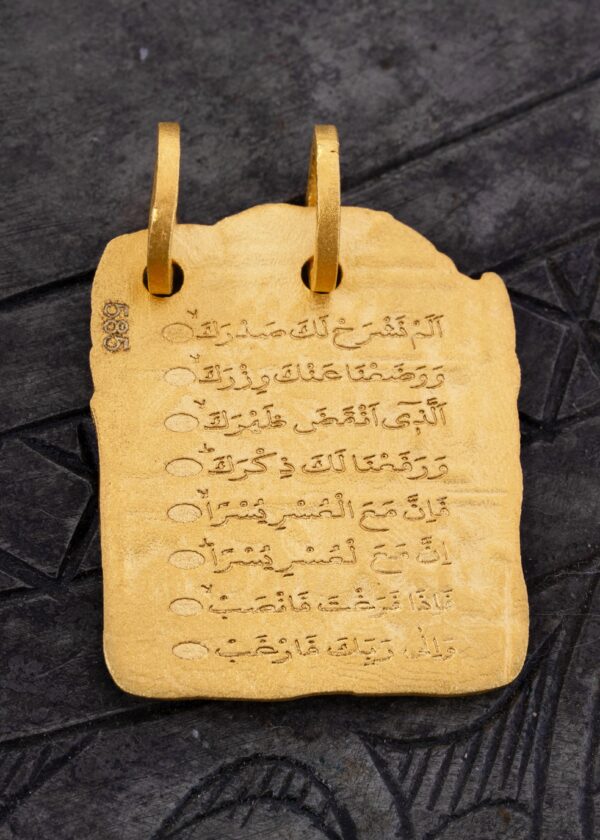 585
اَلَمْ نَشْرَحْ لَكَ صَدْرَكَۙ
وَوَضَعْنَا عَنْكَ وِزْرَكَۙ
اَلَّذ۪ٓى اَنْقَضَ ظَهْرَكَۙ
وَرَفَعْنَا لَكَ ذِكْرَكَۜ
فَاِنَّ مَعَ الْعُسْرِ يُسْرًاۙ
اِنَّ مَعَ لْعُسْرِ يُسْرًاۜ
فَاِذَا فَرَغْتَ فَانْصَبْۙ
وَاِلٰى رَبِّكَ فَارْغَبْ